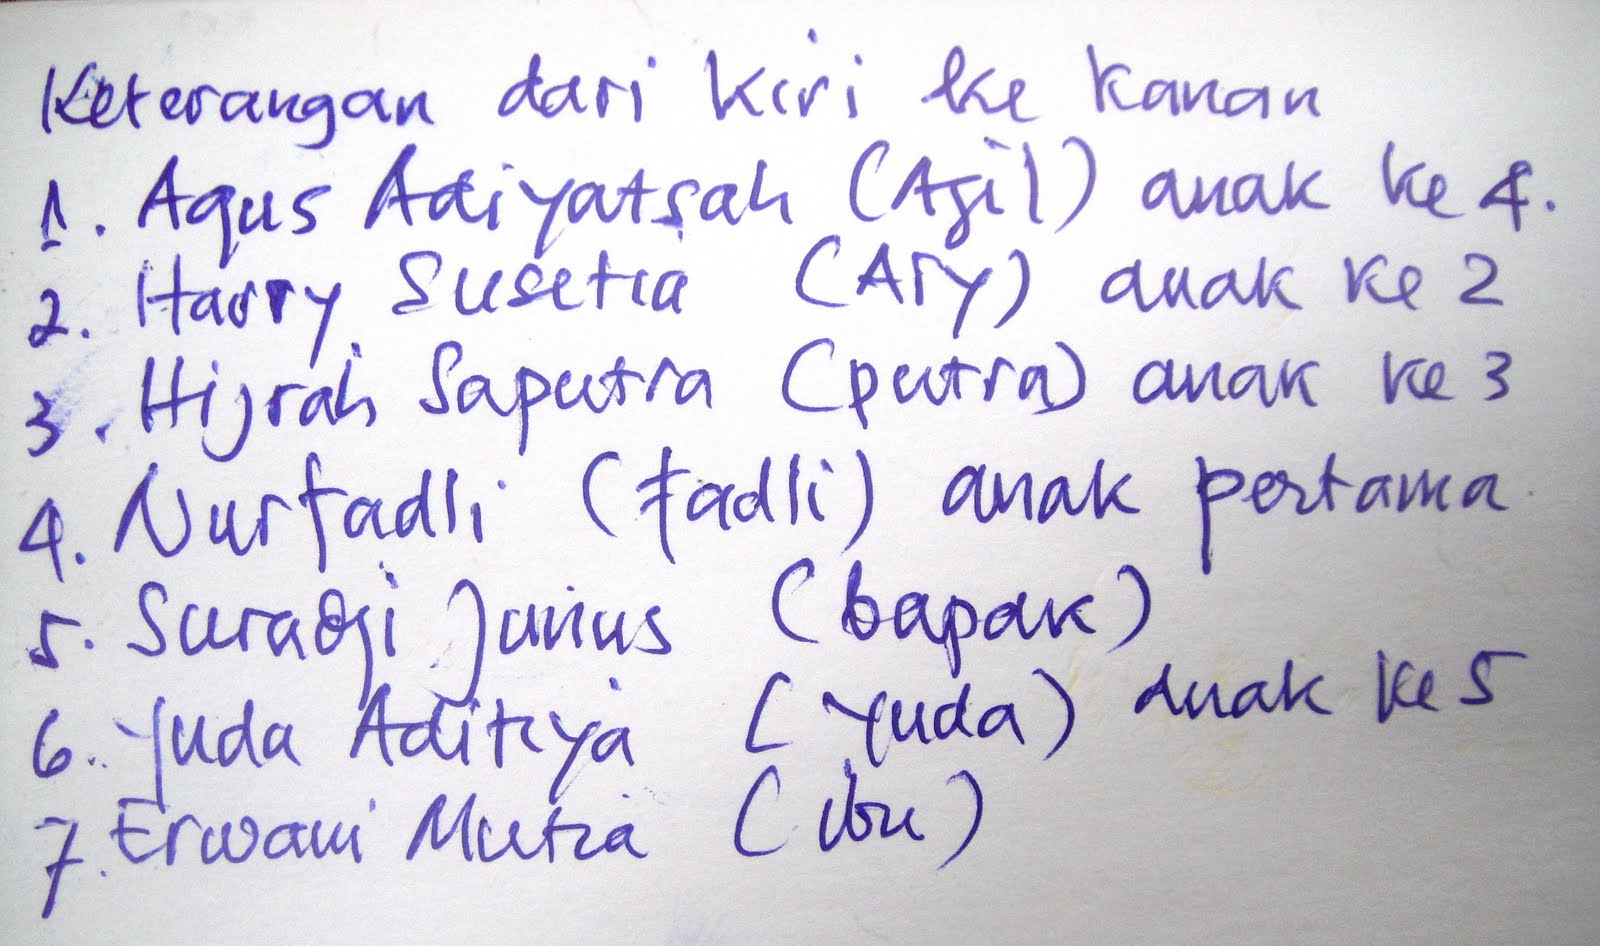 Keterangan dari kiri ke kanan
1. Agus Adiyatsah (Agil) anak ke 4.
2. Harry Susetia (Ary) anak ke 2
3. Hijrah Saputra (putra) anak ke 3
4. Nurfadli (fadli) anak pertama
5. Suradji Junus (bapak)
6. Yuda Aditiya (Yuda) anak ke 5
7. Erwani Mutia (ibu)